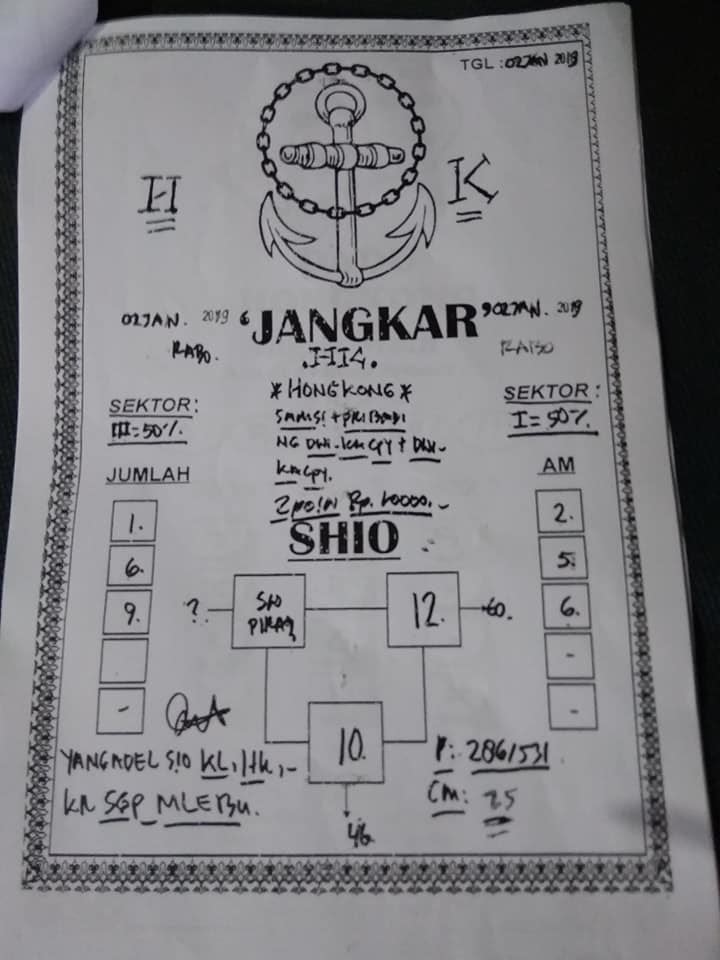 TGL : 02 JAN 2019
H K
02 JAN. 2019 "JANGKAR" 02 JAN. 2019
RABO. RABO
* HONGKONG *
SEKTOR: SEKTOR:
III = 50% I = 50%
NG
JUMLAH AM
2 POIN Rp. 10000.-
SHIO
1. 2.
6. 5.
9. 6.
- -
? SIO 12. 60.
10.
46
YANG ADEL SIO KL, HK,-
KN SGP MLEBU.
P: 2861531
CM: 25